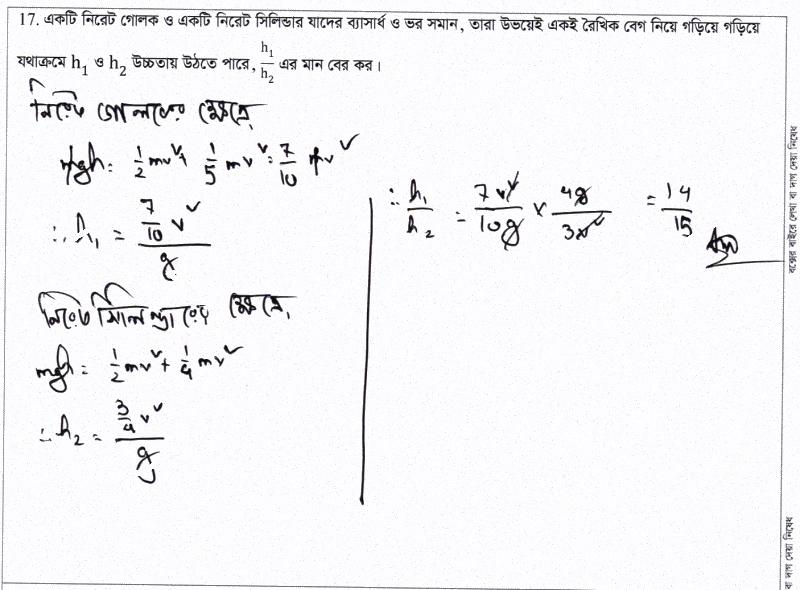 17. একটি নিরেট গোলক ও একটি নিরেট সিলিন্ডার যাদের ব্যাসার্ধ ও ভর সমান, তারা উভয়েই একই রৈখিক বেগ নিয়ে গড়িয়ে গড়িয়ে
যথাক্রমে h₁ ও h₂ উচ্চতায় উঠতে পারে, h₁/h₂ এর মান বের কর।
নিরেট গোলকের ক্ষেত্রে,
mgh = 1/2 mv² + 1/5 mv² = 7/10 mv²
∴ h₁ = (7/10 v²)/g
নিরেট সিলিন্ডারের ক্ষেত্রে,
mgh = 1/2 mv² + 1/4 mv²
∴ h₂ = (3/4 v²)/g
∴ h₁/h₂ = 7v²/10g × 4g/3v² = 14/15
Ans
বক্সের বাইরে লেখা বা দাগ দেয়া নিষেধ
বা দাগ দেয়া নিষেধ